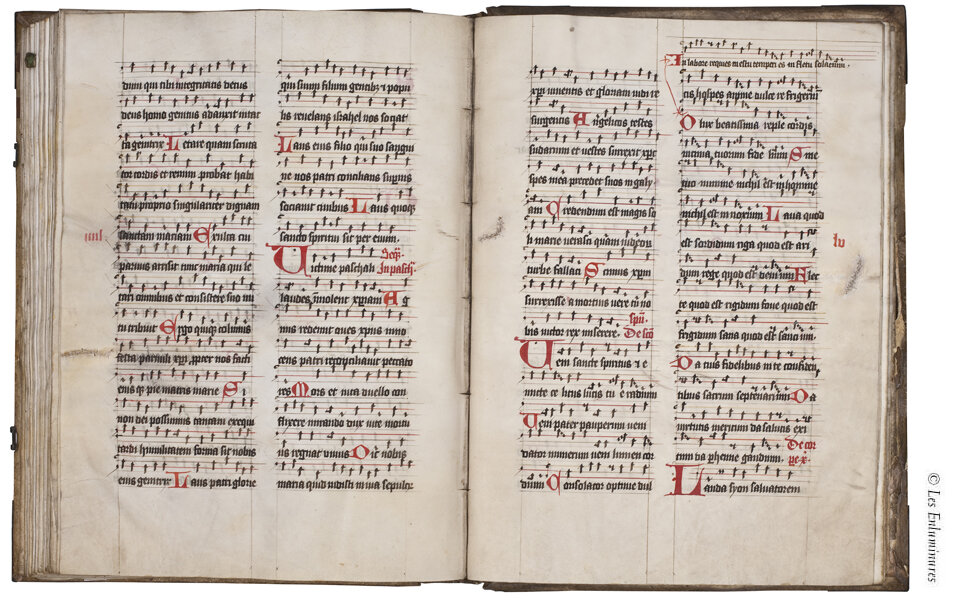 dnm qui tibi integritatis decus
deus homo genitus adauxit intac
ta genitrix Letare quam scruta
tor cordis et renum probat habi
taclo proprio singulariter dignam
sanctam mariam Exulta cui
paruus arrisit tunc maria qui le
tari omnibus et consistere suo nu
tu tribuit Ergo quique colimus
festa paruuli xpi propter nos facti
eius que pie matris marie Si
non dei possumus tantam exequi
tardi humilitatem forma sit nobis
eius genitrix Laus patri glorie
iiii
qui suum filium gentibus et popu
lis reuelans israhel nos sociat
Laus eius filio qui suo sangui
ne nos patri concilians supnis
sociauit ciuibus Laus quoque
sancto spiritui sit per euum.
Seq.
Uictime paschali In pasch.
laudes ymolent xpiani Ag
nus redemit oues xpus inno
cens patri reconciliauit peccato
res Mors et uita duello con
flixere mirando dux uite mortu
us regnat uiuus Dic nobis
maria quid uidisti in uia sepulcr
xpi uiuentis et gloriam uidi re
surgentis Angelicos testes
sudarium et uestes surrexit xpc
spes mea precedet suos in galy
am Credendum est magis so
li marie veraci quam iudeor
turbe fallaci Scimus xpm
surrexisse a mortuis uere tu no
bis uictor rex miserere. De sco
spu.
Ueni sancte spiritus et e
mitte celitus lucis tue radium
Ueni pater pauperum ueni
dator munerum ueni lumen cor
dium Consolator optime dul
In labore requies in estu temperies in fletu solacium.
cis hospes anime dulce refrigeriu
O lux beatissima reple cordis
intima tuorum fidelium Sine
tuo numine nichil est in homine
nichil est innoxium Laua quod
est sordidum riga quod est ari
dum rege quod est deuium Flec
te quod est rigidum foue quod est
frigidum sana quod est sauciu
Da tuis fidelibus in te confiden
tibus sacrum septenarium Da
uirtutis meritum da salutis exi
tum da perhenne gaudium. De cor
pe x.
Lauda syon saluatorem
lv
© Les Enluminures